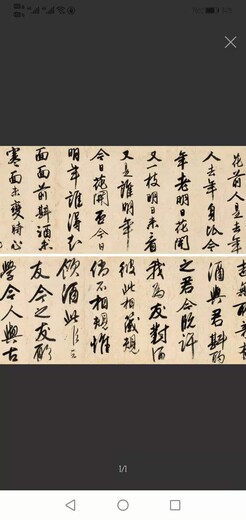 花前人是去年
人去年身比今
年老明日花開
又一枝明日来看
又是誰明年
今日花開否今日
明年誰得知
面面前斟酒未
寒面未變時心
酒與君斟酌
之君今既許
我為友對酒
彼此相箴規
倘不相規惟
傾酒此
友今之友願
學今人與古
1/1